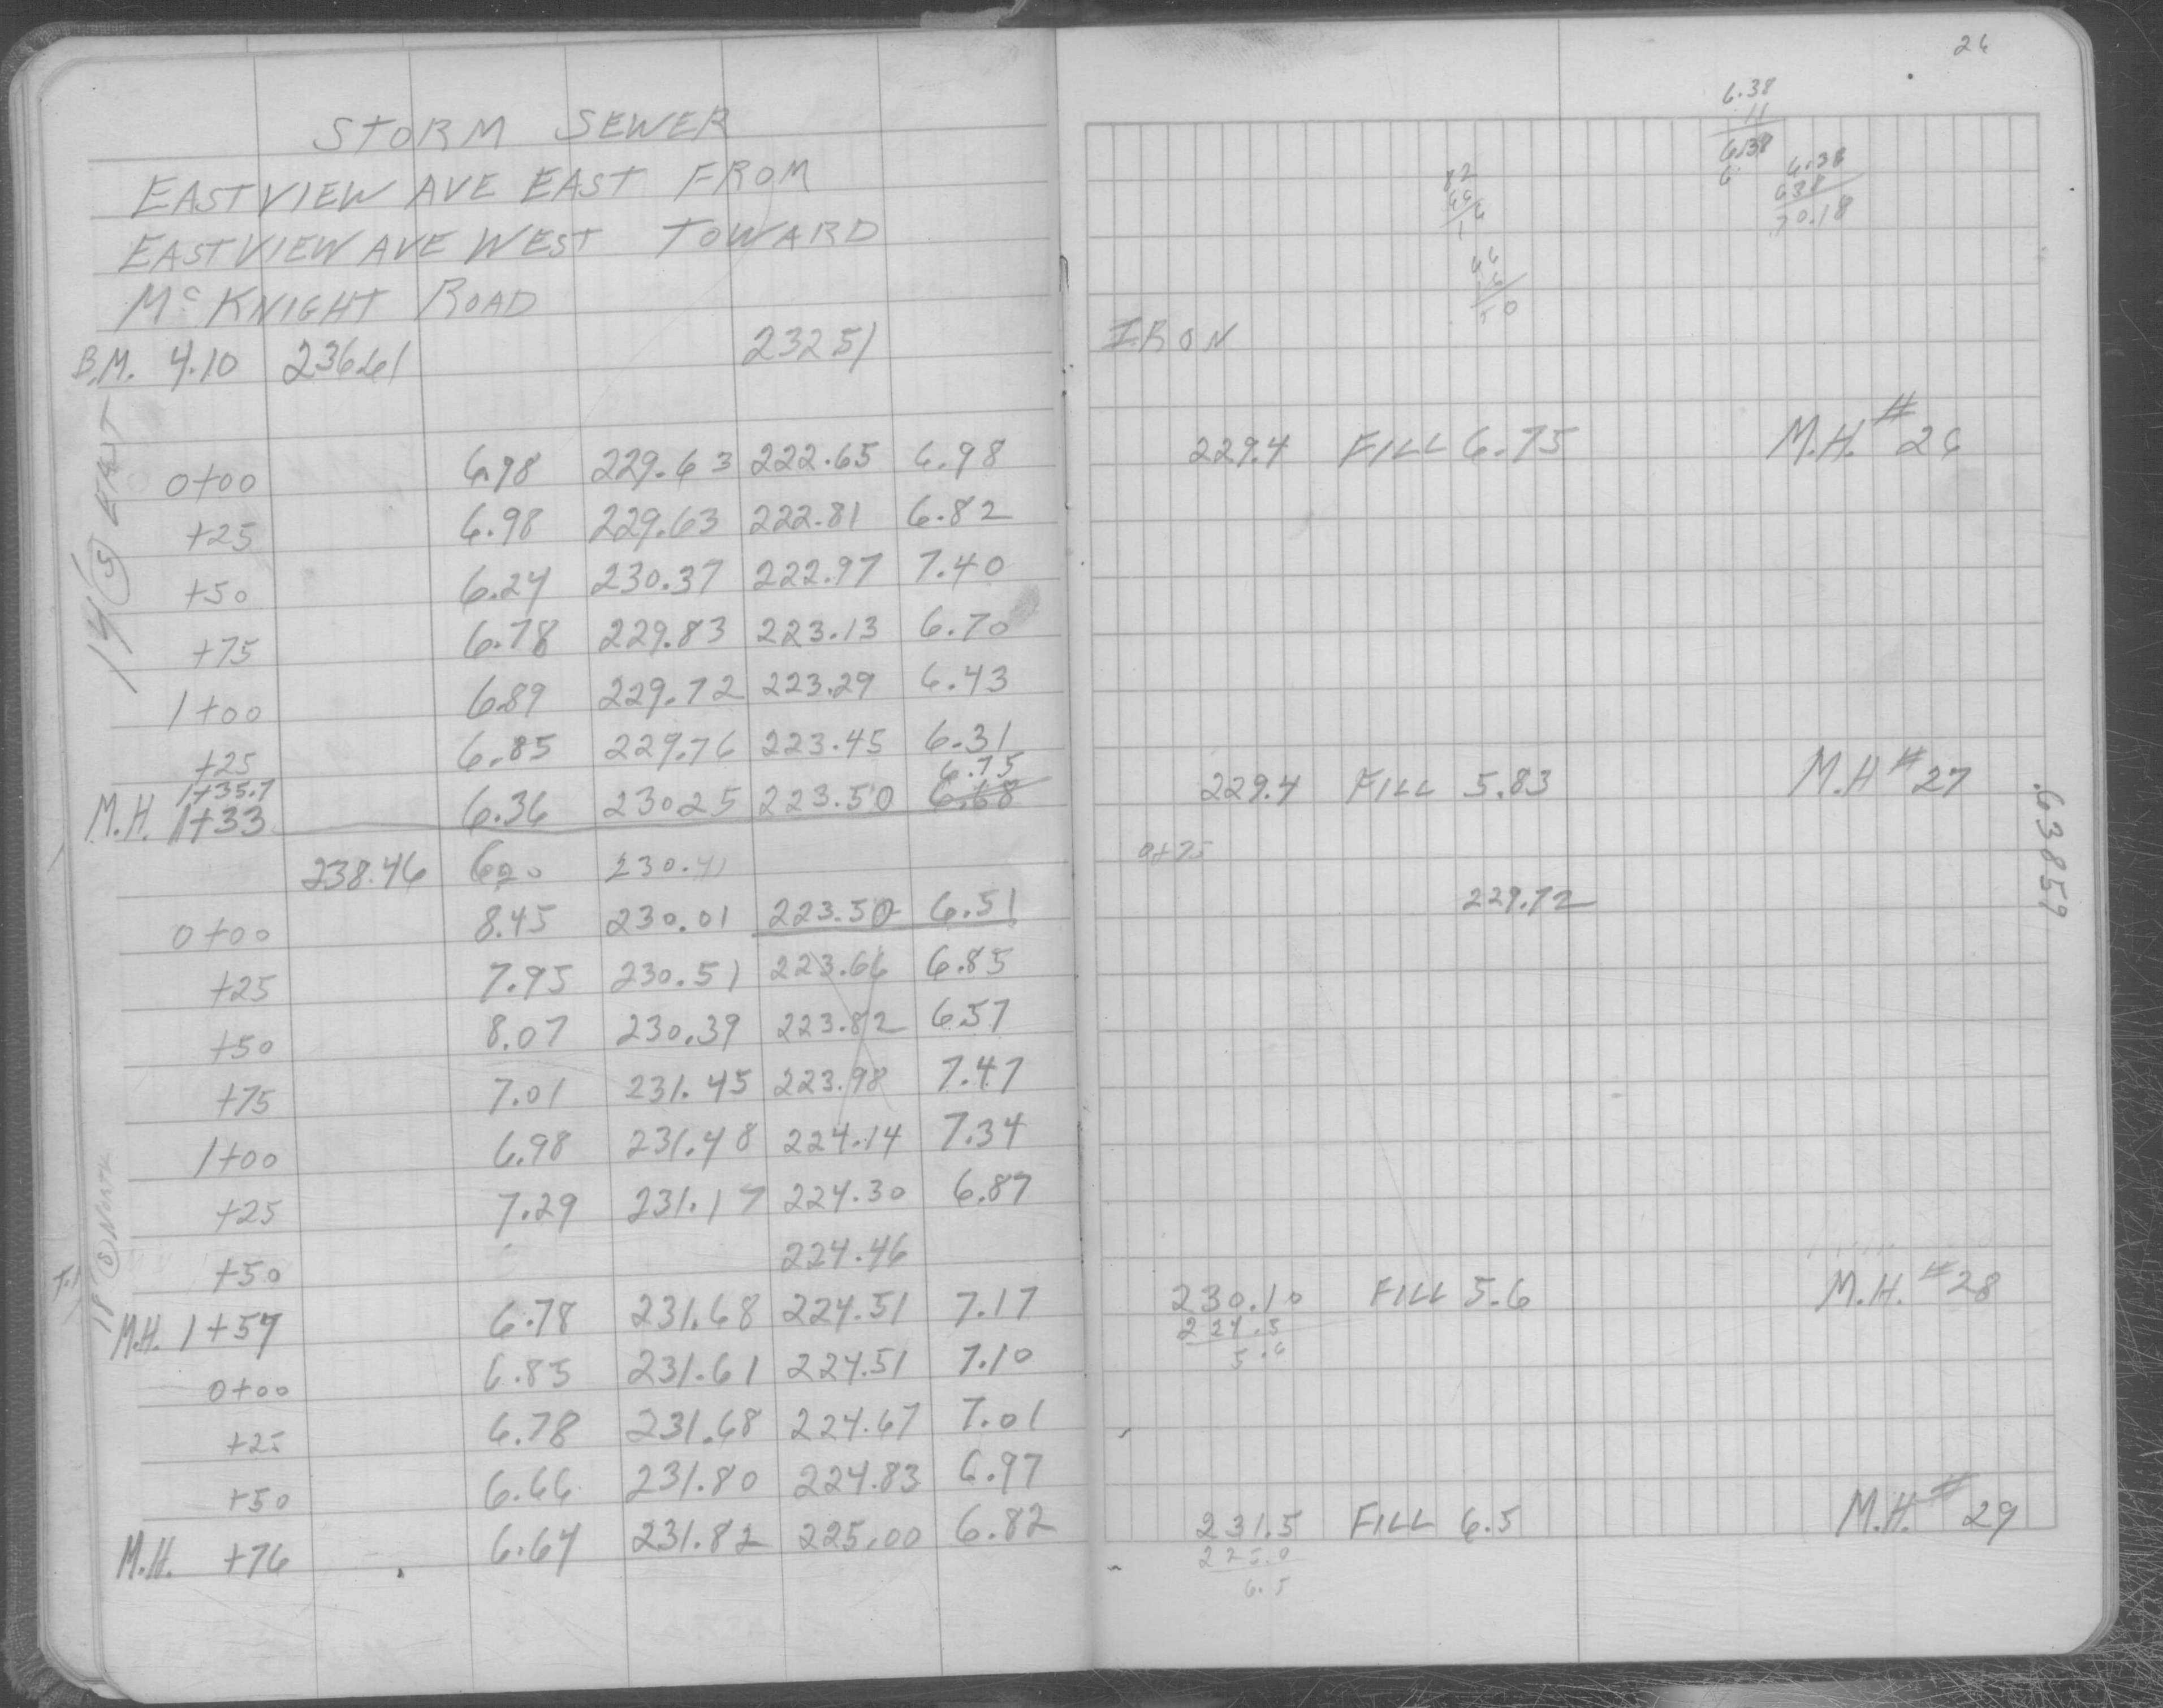 STORM SEWER
EASTVIEW AVE EAST FROM
EASTVIEW AVE WEST TOWARD
Mc KNIGHT ROAD
B.M. 4.10 236.61 232.51
0+00 6.98 229.63 222.65 6.98
+25 6.98 229.63 222.81 6.82
+50 6.24 230.37 222.97 7.40
+75 6.78 229.83 223.13 6.70
1+00 6.89 229.72 223.29 6.43
+25 6.85 229.76 223.45 6.31
1+35.7 6.75
M.H. 1+33 6.36 230.25 223.50 6.68
238.46 6.20 230.41
0+00 8.45 230.01 223.50 6.51
+25 7.95 230.51 223.66 6.85
+50 8.07 230.39 223.82 6.57
+75 7.01 231.45 223.98 7.47
1+00 6.98 231.48 224.14 7.34
+25 7.29 231.17 224.30 6.87
+50 224.46
M.H. 1+57 6.78 231.68 224.51 7.17
0+00 6.85 231.61 224.51 7.10
+25 6.78 231.68 224.67 7.01
+50 6.66 231.80 224.83 6.97
M.H. +76 6.64 231.82 225.00 6.82
26
6.38
11
6.38
6.38
638
70.18
IRON
229.4 FILL 6.75 M.H. # 26
229.4 FILL 5.83 M.H # 27
0+75
229.72
.63859
230.10 FILL 5.6 M.H. # 28
224.5
5.6
231.5 FILL 6.5 M.H. # 29
225.0
6.5